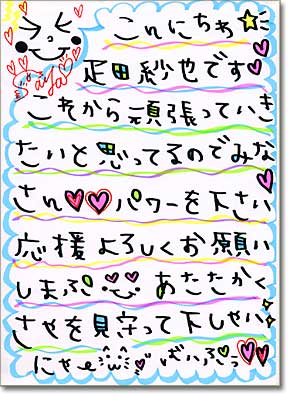 こんにちわ☆
Saya
疋田紗也です♡
これから頑張っていき
たいと思ってるのでみな
さん♥♥パワーを下さい
応援よろしくお願い
しまぷ あたたかく
さやを見守って下しゃい
にゃe ばふっ♥♥